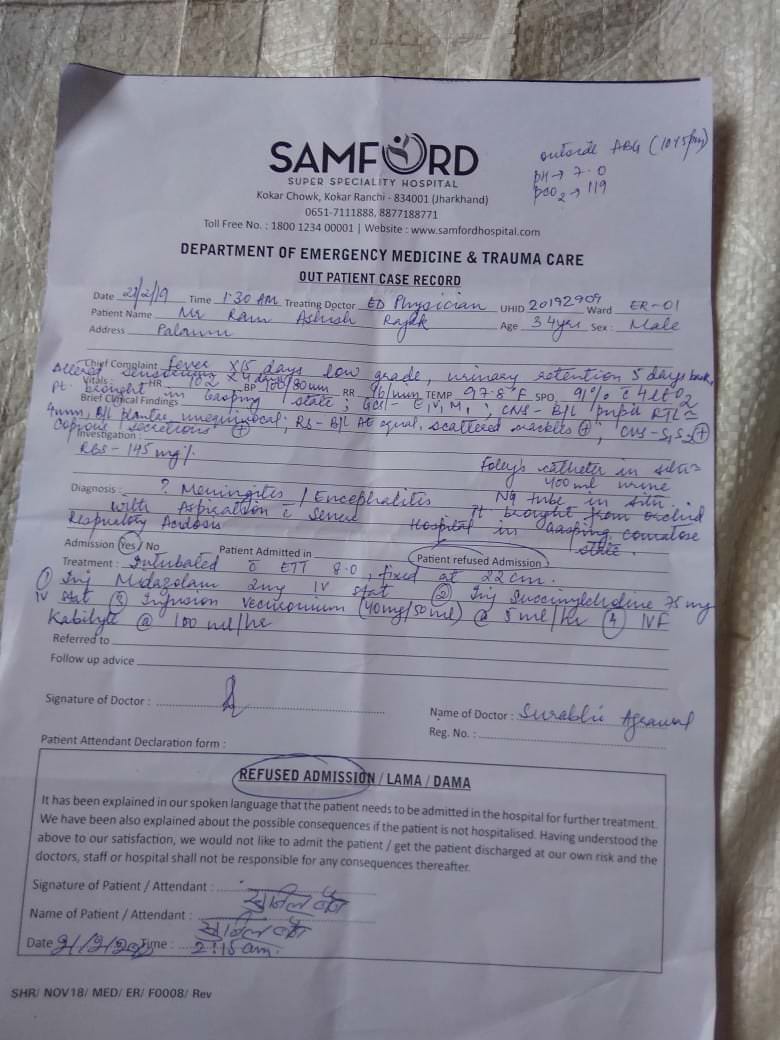 outside ABG (10:45pm)
pH → 7.0
pCO2 → 119
SAMFORD
SUPER SPECIALITY HOSPITAL
Kokar Chowk, Kokar Ranchi - 834001 (Jharkhand)
0651-7111888, 8877188771
Toll Free No. : 1800 1234 00001 | Website : www.samfordhospital.com
DEPARTMENT OF EMERGENCY MEDICINE & TRAUMA CARE
OUT PATIENT CASE RECORD
Date 21/2/19 Time 1:30 AM Treating Doctor ED Physician UHID 20192909 Ward ER-01
Patient Name Mr Ram Ashish Rajak Age 34yrs Sex : Male
Address Palamu
Chief Complaint Fever x 15 days low grade, urinary retention 5 days back,
Altered sensorium x 4 days
Vitals : HR 102 BP 100/80mm RR 16/min TEMP 97.8°F SPO2 91% c 4lt O2
Pt. brought in Gasping state ; GCS - E1V1M1 ; CNS - B/L pupil RTL
Brief Clinical Findings
4mm, B/L plantar unequivocal; RS - B/L AE equal, scattered crackles + ; CVS - S1S2 +
Copious secretions +
Investigation :
RBS - 145 mg%
Foley's catheter in situ
400 ml urine
NG tube in situ.
Diagnosis : ? Meningitis / Encephalitis
with Aspiration c Severe
Respiratory Acidosis
Pt brought from orchid
Hospital in Gasping, comatose
state.
Admission Yes / No Patient Admitted in Patient refused Admission
Treatment : Intubated c ETT 8.0, fixed at 22cm.
1 Inj Midazolam 2mg IV stat 2 Inj Succinylcholine 75 mg
IV stat 3 Infusion Vecuronium (40mg/50ml) @ 5 ml/hr 4 IVF
Kabilyte @ 100 ml/hr
Referred to
Follow up advice
Signature of Doctor :
Name of Doctor : Surabhi Agrawal
Reg. No. :
Patient Attendant Declaration form :
REFUSED ADMISSION / LAMA / DAMA
It has been explained in our spoken language that the patient needs to be admitted in the hospital for further treatment.
We have been also explained about the possible consequences if the patient is not hospitalised. Having understood the
above to our satisfaction, we would not like to admit the patient / get the patient discharged at our own risk and the
doctors, staff or hospital shall not be responsible for any consequences thereafter.
Signature of Patient / Attendant :
Name of Patient / Attendant :
Date 21/2/20 Time : 2:15 am.
SHR/ NOV18/ MED/ ER/ F0008/ Rev